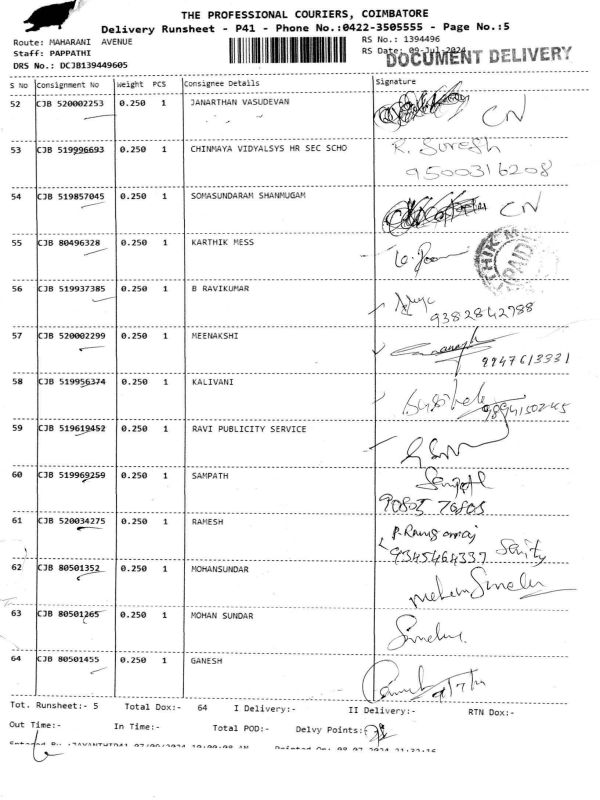 THE PROFESSIONAL COURIERS, COIMBATORE
Delivery Runsheet - P41 - Phone No.:0422-3505555 - Page No.:5
Route: MAHARANI AVENUE RS No.: 1394496
Staff: PAPPATHI RS Date: 09-Jul-2024
DOCUMENT DELIVERY
DRS No.: DCJB139449605
S No Consignment No Weight PCS Consignee Details Signature
52 CJB 520002253 0.250 1 JANARTHAN VASUDEVAN CN
53 CJB 519996693 0.250 1 CHINMAYA VIDYALSYS HR SEC SCHO R. Suresh
9500316208
54 CJB 519857045 0.250 1 SOMASUNDARAM SHANMUGAM CN
55 CJB 80496328 0.250 1 KARTHIK MESS
56 CJB 519937385 0.250 1 B RAVIKUMAR
9382842988
57 CJB 520002299 0.250 1 MEENAKSHI
9947613331
58 CJB 519956374 0.250 1 KALIVANI
59 CJB 519619452 0.250 1 RAVI PUBLICITY SERVICE
60 CJB 519969259 0.250 1 SAMPATH
90805 76805
61 CJB 520034275 0.250 1 RAMESH
9345464337
62 CJB 80501352 0.250 1 MOHANSUNDAR
63 CJB 80501265 0.250 1 MOHAN SUNDAR
64 CJB 80501455 0.250 1 GANESH
Tot. Runsheet:- 5 Total Dox:- 64 I Delivery:- II Delivery:- RTN Dox:-
Out Time:- In Time:- Total POD:- Delvy Points:-